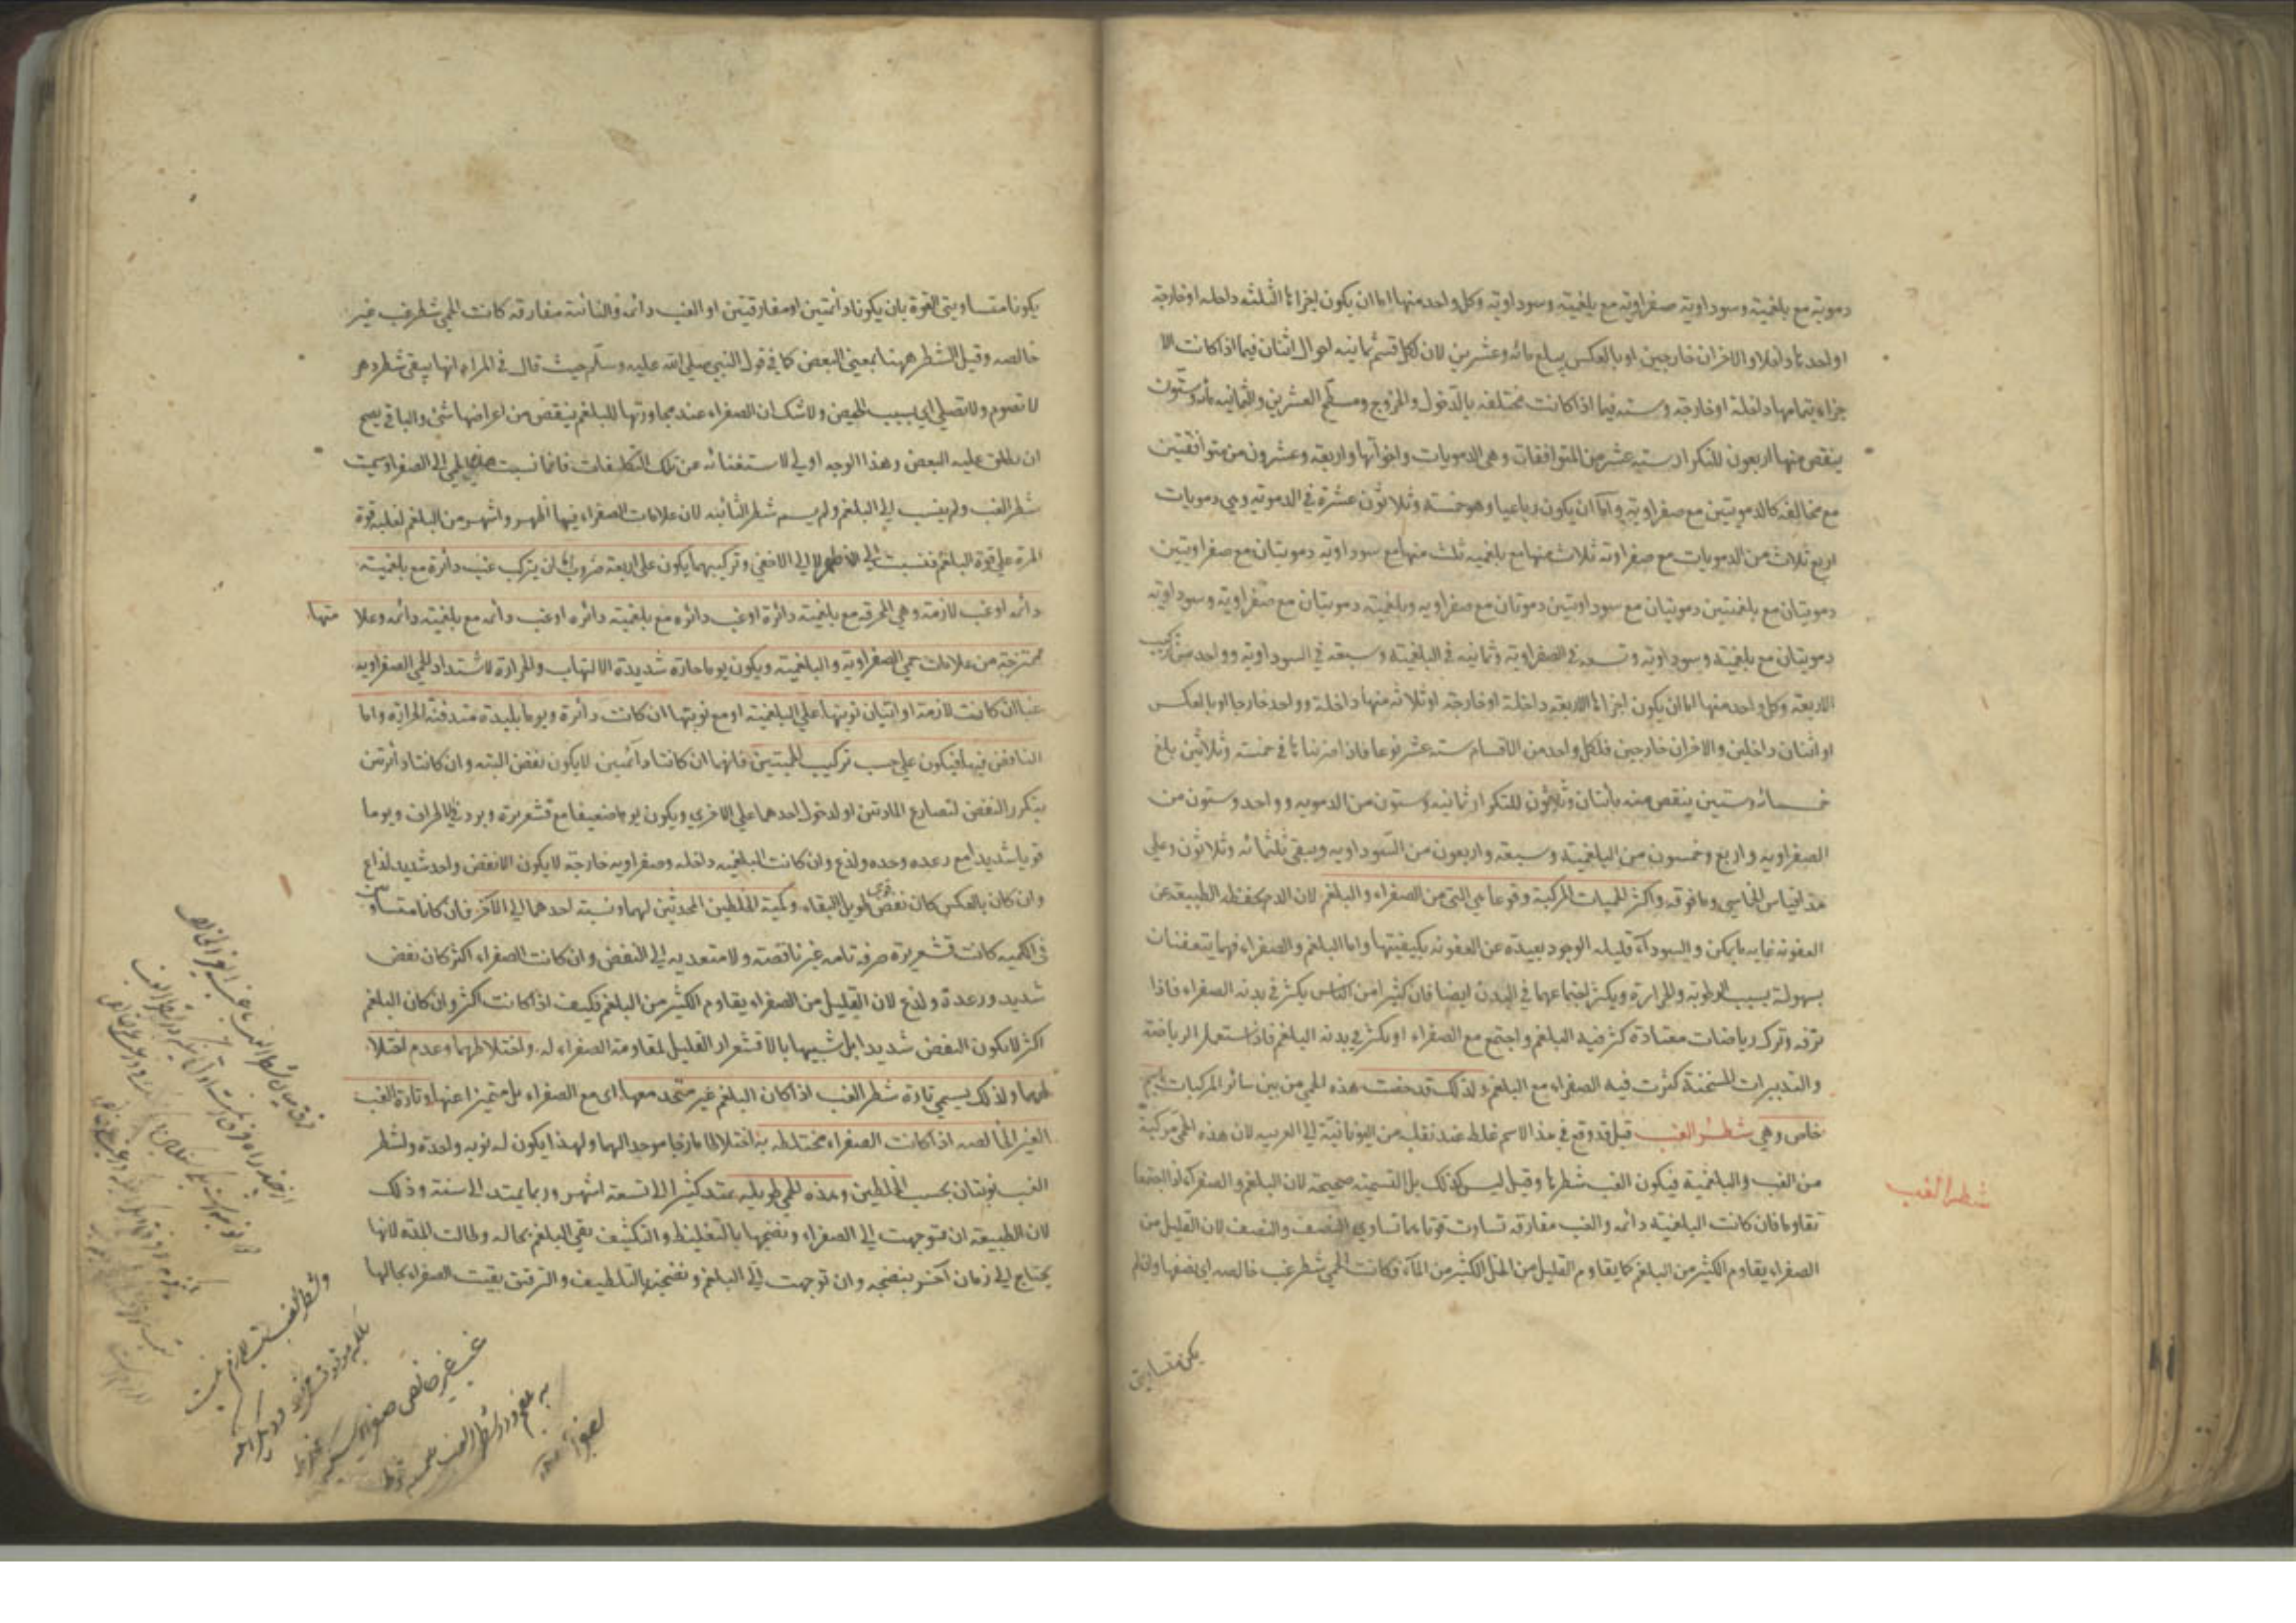 دموية مع بلغمية وسوداوية صفراوية مع بلغمية وسوداوية وكل واحد منها اما ان يكون اجزاءها الثلثه داخله او خارجة
او احدها داخلا والاخران خارجين او بالعكس يبلغ مائه وعشرين لان لكل قسم ثمانيه احوال اثنان فيما اذا كانت الا
جزاء بتمامها داخلة او خارجة وسته فيما اذا كانت مختلفه بالدخول والخروج ومسطح العشرين والثمانيه مائه وستون
ينقص منها اربعون للتكرار ستة عشر من المتوافقات وهي الدمويات واخواتها واربعة وعشرون من متوافقتين
مع مخالفه كالدمويتين مع صفراوية واما ان يكون رباعيا وهو خمسة وثلاثون عشرة في الدموية وهي دمويات
اربع ثلاث من الدمويات مع صفراوية ثلاث منها مع بلغميه ثلث منها مع سوداوية دمويتان مع صفراويتين
دمويتان مع بلغمتين دمويتان مع سوداويتين دمويتان مع صفراويه وبلغمية دمويتان مع صفراوية وسوداوية
دمويتان مع بلغمية وسوداوية وتسعة في الصفراوية وثمانيه في البلغمية وسبعة في السوداوية وواحد من تركيب
الاربعة وكل واحد منها اما ان يكون اجزاءها الاربعة داخلة او خارجة او ثلاثة منها داخلة وواحد خارجا او بالعكس
او اثنان داخلين والاخران خارجين فلكل واحد من الاقسام ستة عشر نوعا فاذا ضربناها في خمسة وثلاثين بلغ
خمسمائه وستين ينقص منه مأتان وثلاثون للتكرار ثمانيه وستون من الدمويه وواحد وستون من
الصفراويه واربع وخمسون من البلغمية وسبعة واربعون من السوداويه ويبقى ثلثمائه وثلاثون وعلى
هذا قياس الخماسي وما فوقه واكثر الحميات المركبة وقوعا هي التي من الصفراء والبلغم لان الدم تحفظه الطبيعة عن
العفونه غايه ما يمكن والسوداء قليله الوجود بعيدة عن العفونه بكيفيتها واما البلغم والصفراء فهما يتعفنان
بسهولة بسبب الرطوبة والحرارة ويكثر اجتماعهما في البدن ايضا فان كثيرا من الناس يكثر في بدنه الصفراء فاذا
ترفه وترك رياضات معتادة كثر فيه البلغم واجتمع مع الصفراء او يكثر في بدنه البلغم فاذا استعمل الرياضة
والتدبيرات المسخنة كثرت فيه الصفراء مع البلغم ولذلك قد خصت هذه الحمى من بين سائر المركبات باسم
خاص وهي شطر الغب قيل قد وقع في هذا الاسم غلط عند نقله من اليونانية الى العربيه لان هذه الحمى مركبة
من الغب والبلغمية فيكون الغب شطرها وقيل ليس كذلك بل التسمية صحيحة لان البلغم والصفراء اذا اجتمعا
تقاوما فان كانت البلغمية دائمه والغب مفارقه تساوت قوتاهما تساوي النصف والنصف لان القليل من
الصفراء يقاوم الكثير من البلغم كما يقاوم القليل من الخل الكثير من الماء فكانت الحمى شطر غب خالصه اي نصفها وان لم
شطر الغب
يكونا متساويتي القوة بان يكونا دائمتين او مفارقتين او الغب دائمه والنائبة مفارقه كانت الحمى شطر غب غير
خالصه وقيل الشطر ههنا بمعنى البعض كما في قول النبي صلى الله عليه وسلم حيث قال في المراه انها يبقى شطر دهر
لا تصوم ولا تصلي اي بسبب الحيض ولا شك ان الصفراء عند مجاورتها للبلغم ينقص من اعراضها شئ والباقي يصح
ان يطلق عليه البعض وهذا الوجه اولى لاستغنائه عن تلك التكلفات فانما نسبت هذه الحمى الى الصفراء وسميت
شطر الغب ولم ينسب الى البلغم ولم يسم شطر النائبه لان علامات الصفراء فيها اظهر واشهر من البلغم لغلبه قوة
المرة على قوة البلغم فنسبت الى الاظهر لا الى الاخفى وتركيبهما يكون على اربعة ضروب لان يتركب غب دائرة مع بلغمية
دائمه او غب لازمة وهي المحرقه مع بلغمية دائرة او غب دائره مع بلغمية دائره او غب دائمه مع بلغمية دائمه وعلا متها
ممتزجة من علامات حمى الصفراوية والبلغمية ويكون يوما حارة شديدة الالتهاب والحرارة لاشتداد الحمى الصفراويه
غبا ان كانت لازمة او اتيان نوبتها على البلغمية او مع نوبتها ان كانت دائرة ويوما بليدة متدفنة الحرارة واما
النافض فيها فيكون على حسب تركيب الحميتين فانهما ان كانتا دائمتين لا يكون نفض البته وان كانتا دائرتين
يتكرر النفض لتصارع المادتين او لدخول احدهما على الاخرى ويكون يوما ضعيفا مع قشعريرة وبرد في الاطراف ويوما
قويا شديدا مع رعده وحده ولذع وان كانت البلغميه داخله وصفراويه خارجة لا يكون الا نفض واحد شديد لذاع
وان كان بالعكس كان نفض قوى طويل البقاء وكمية الخلطين المحدثين لهما ونسبة احدهما الى الآخر فان كانا متساويين
في الكميه كانت قشعريرة صرفة تامه غير ناقصة ولا متعديه الى النفض وان كانت الصفراء اكثر كان نفض
شديد ورعدة ولذع لان القليل من الصفراء يقاوم الكثير من البلغم فكيف اذا كانت اكثر وان كان البلغم
اكثر لا يكون النفض شديدا بل شبيها بالاقشعرار القليل لمقاومة الصفراء له واختلاطهما وعدم اختلا
طهما ولذلك يسمى تارة شطر الغب اذا كان البلغم غير متحد معها اى مع الصفراء بل متميزا عنها وتارة الغب
الغير الخالصه اذا كانت الصفراء مختلطه به اختلاطا مازجا موحدا لهما ولهذا يكون له نوبه واحدة ولشطر
الغب نوبتان بحسب الخلطين وهذه الحمى طويله تمتد كثيرا الى تسعة اشهر وربما يمتد الى سنة وذلك
لان الطبيعة ان توجهت الى الصفراء ونضجها بالتغليظ والتكثيف بقي البلغم بحاله وطالت المدة لانها
يحتاج الى زمان آخر ينضجه وان توجهت الى البلغم ونضجته بالتلطيف والترقيق بقيت الصفراء بحالها